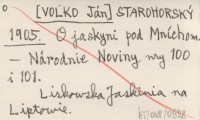 [VOĽKO Ján] STAROHORSKÝ
1905. O jaskyni pod Mníchom.
– Národnie Noviny nry 100
i 101.
Liskowska Jaskinia na
Liptowie.